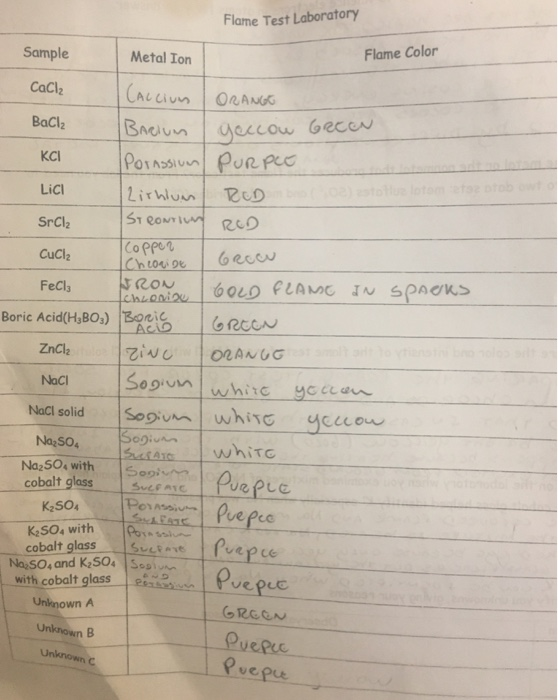 Flame Test Laboratory
Sample Metal Ion Flame Color
CaCl₂ CALCIUM ORANGE
BaCl₂ BARIUM YELLOW GREEN
KCl POTASSIUM PURPLE
LiCl Lithium RED
SrCl₂ STRONTIUM RED
CuCl₂ COPPER Chloride GREEN
FeCl₃ IRON chloride GOLD FLAME IN SPARKS
Boric Acid(H₃BO₃) BORIC ACID GREEN
ZnCl₂ ZINC ORANGE
NaCl SODIUM white yellow
NaCl solid SODIUM white yellow
Na₂SO₄ SODIUM SULFATE WHITE
Na₂SO₄ with cobalt glass SODIUM SULFATE PURPLE
K₂SO₄ POTASSIUM SULFATE PURPLE
K₂SO₄ with cobalt glass POTASSIUM SULFATE PURPLE
Na₂SO₄ and K₂SO₄ with cobalt glass SODIUM AND POTASSIUM PURPLE
Unknown A GREEN
Unknown B PURPLE
Unknown C PURPLE